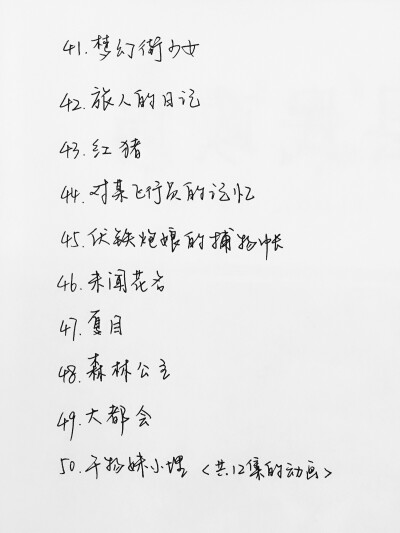 41.梦幻街少女
42.旅人的日记
43.红猪
44.对某飞行员的记忆
45.伏铁炮娘的捕物帐
46.未闻花名
47.夏目
48.森林公主
49.大都会
50.干物妹小埋<共12集的动画>